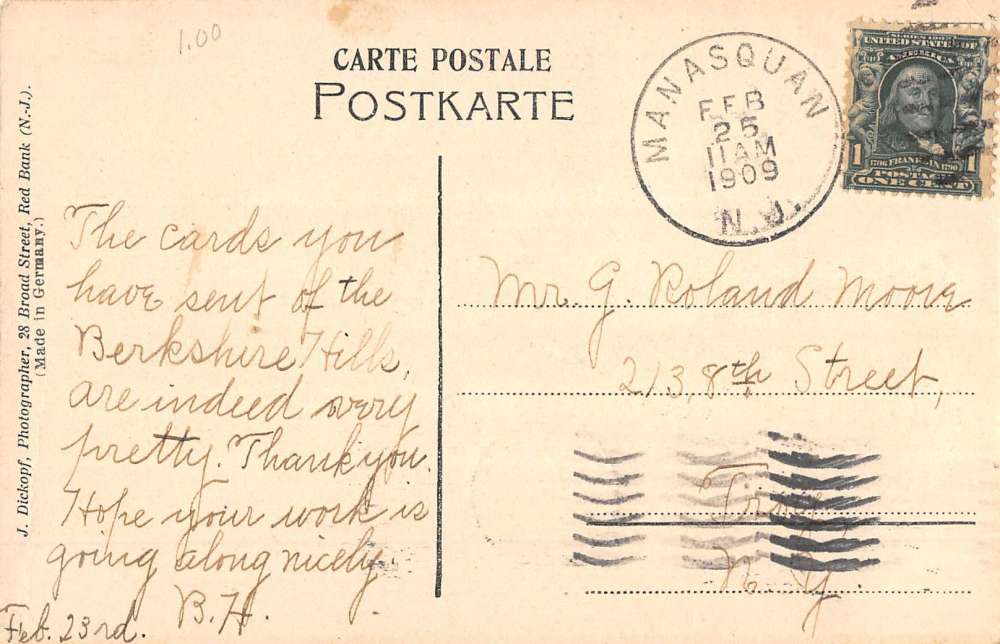 1.00
CARTE POSTALE
POSTKARTE
MANASQUAN
FEB
25
11 AM
1909
N.J.
UNITED STATES OF
AMERICA
1 1706 FRANKLIN 1790 1
POSTAGE
ONE CENT
J. Dickopf, Photographer, 28 Broad Street, Red Bank (N.-J.).
(Made in Germany.)
The cards you
have sent of the
Berkshire Hills,
are indeed very
pretty. Thank you.
Hope your work is
going along nicely
B.H.
Feb. 23rd.
Mr. G. Roland Moore
213, 8th Street,
Troy
N. Y.